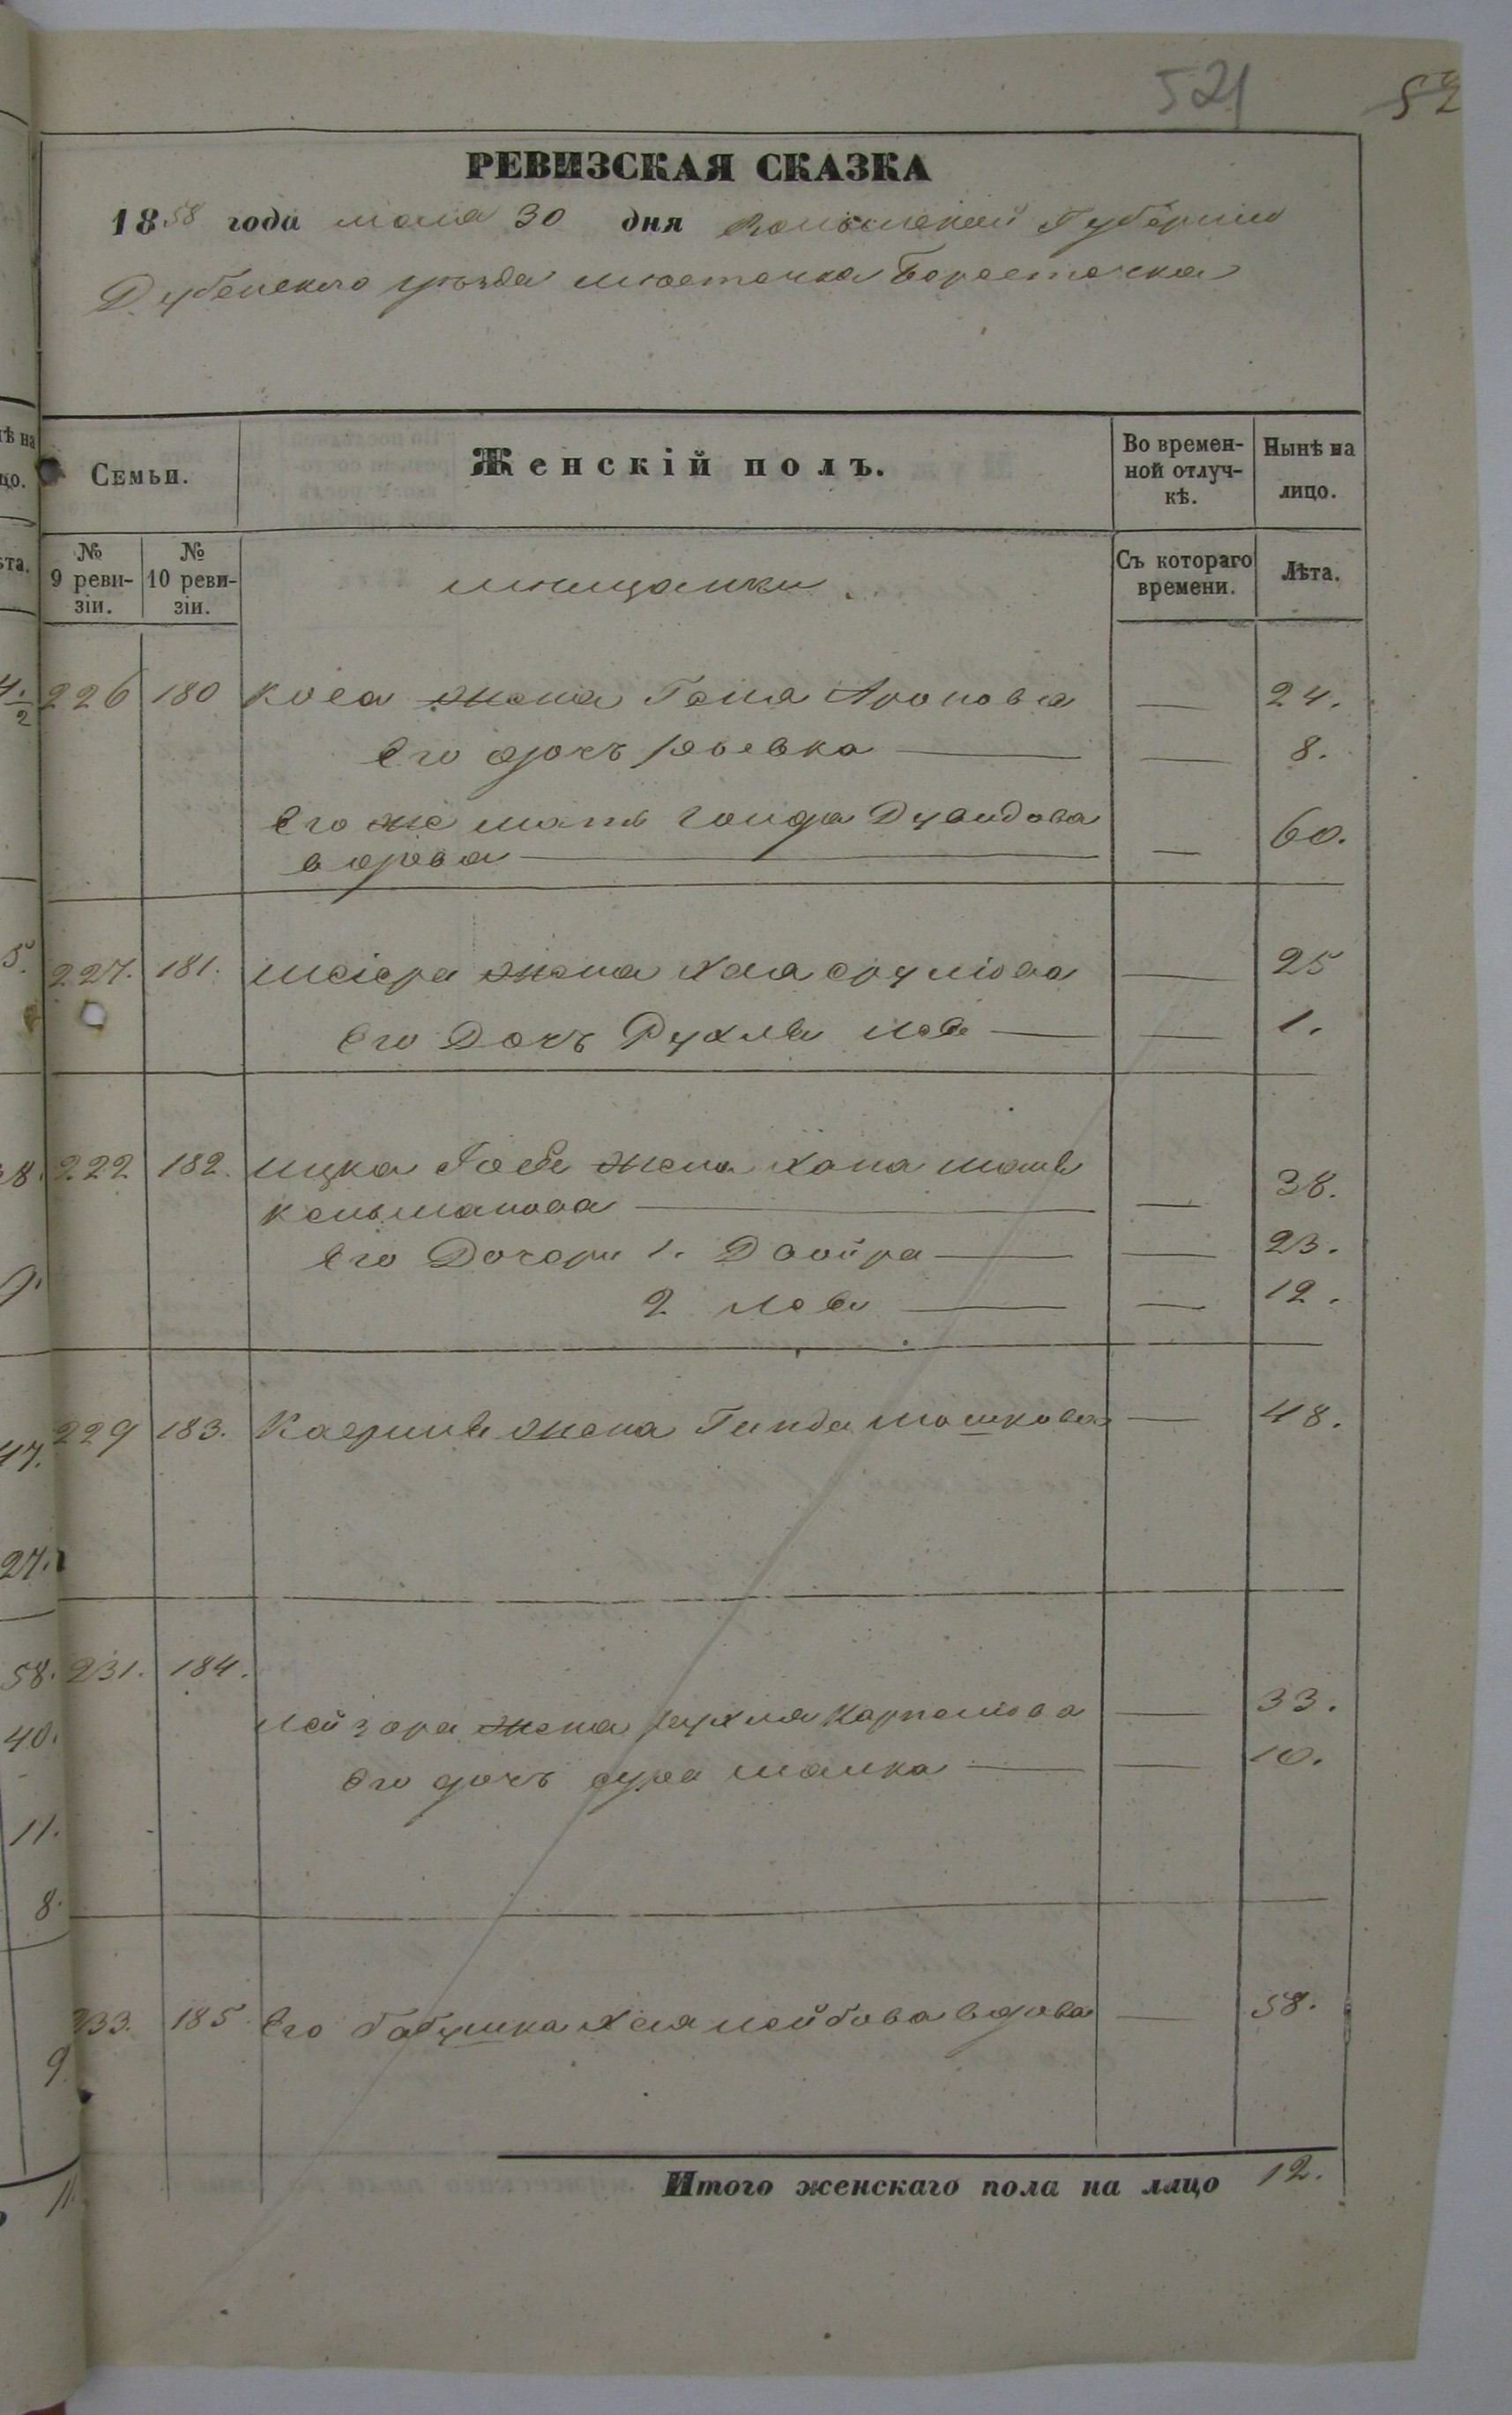 521
52
РЕВИЗСКАЯ СКАЗКА
1858 года мая 30 дня Волынской Губернии
Дубенского уезда местечка Берестечка
Семьи.
Женскій полъ.
Во времен-
ной отлуч-
кѣ.
Нынѣ на
лицо.
№
9 реви-
зіи.
№
10 реви-
зіи.
мещанки
Съ котораго
времени.
Лѣта.
226 180 жена Геня Аронова — 24.
Его дочь Ривка — — 8.
Его же мать Дувидова
вдова — — 60.
227. 181. Меіера жена Хая Сруліова — 25
Его Дочь Рухля — — 1.
222 182. Ицка жена Хана
Кельманова — — 38.
Его Дочери 1. Двойра — — 23.
2 — — 12.
229 183. жена Гинда Мошкова — 48.
231. 184.
Лейзора жена Рухля — 33.
Его дочь Сура — — 10.
233. 185 Его бабушка Хая Лейбова вдова — 58.
Итого женскаго пола на лицо 12.